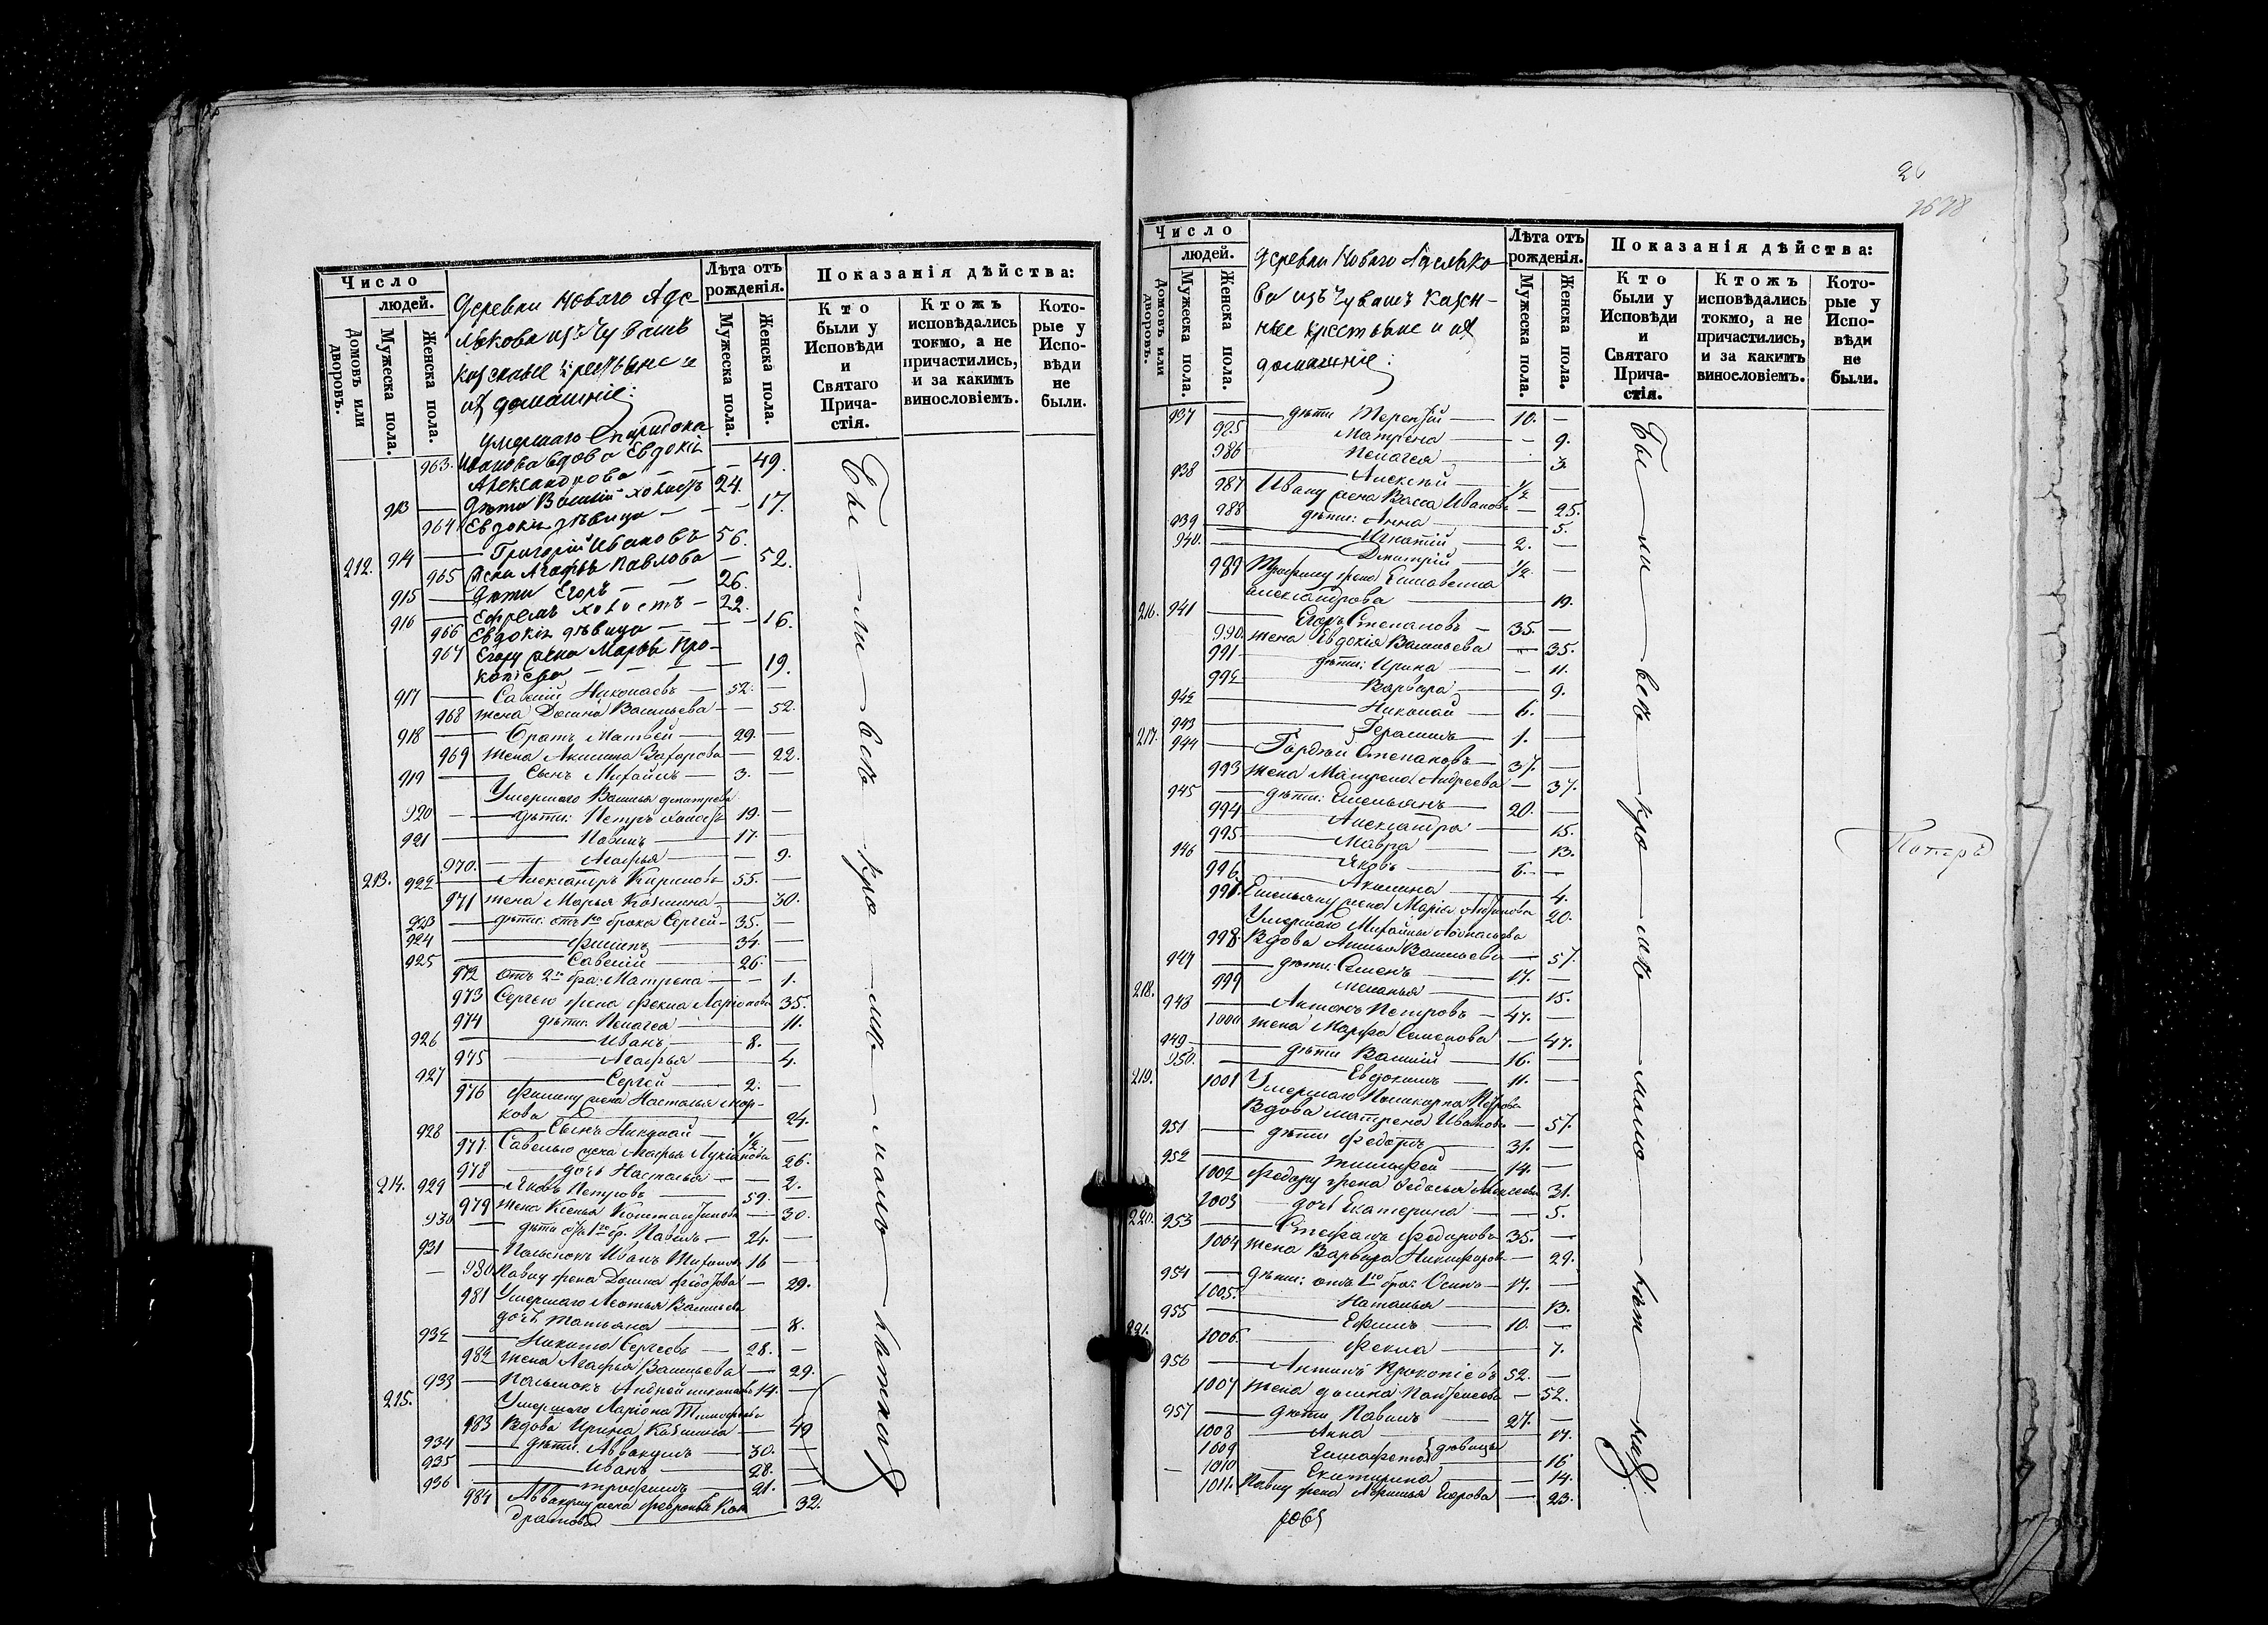 Число
людей.
Домовъ или дворовъ.
Мужеска пола.
Женска пола.
Деревни Новаго Аде-
лякова изъ Чувашъ
казенные крестьяне и
их домашніе:
Лѣта отъ
рожденія.
Мужеска пола.
Женска пола.
Показанія дѣйства:
Кто
были у
Исповѣди
и
Святаго
Прича-
стія.
Ктожъ
исповѣдались
токмо, а не
причастились,
и за какимъ
винословіемъ.
Кото-
рые у
Испо-
вѣди
не
были.
Умершаго Спиридона
963. Иванова вдова Евдокія
Александрова — 49.
913 — дѣти Василій холостъ 24.
964 Евдокія дѣвица — — 17.
212. 914 — Григорій Ивановъ 56.
965 жена Агафья Павлова — 52.
915 — дѣти Егоръ — 26.
916 — Ефремъ холостъ — 22.
966 Евдокія дѣвица — — 16.
967 Егору жена Марѳа Про-
копьева — — 19.
917 — Савелій Николаевъ — 52. —
968 жена Домна Васильева — — 52.
918 — братъ Матвей — 29. —
969 жена Акилина Захарова — 22.
919 — сынъ Михайлъ — 3. —
Умершаго Василья Дмитрева
920 — дѣти: Петръ холостъ 19. —
921 — Павелъ — 17. —
970. — Агафья — — 9.
213. 922 — Александръ Кириловъ 55. —
971 жена Марья Козмина — 30.
923 — дѣти: отъ 1го брака Сергей — 35. —
924 — Филипъ — 34. —
925 — Савелій — 26. —
972 отъ 2го бра: Матрена — — 1.
973 Сергею жена Фекла Ларіонова 35.
974 дѣти: Пелагея — 11.
926 — Иванъ — 8. —
975 — Агафья — 4.
927 — Сергей — 2. —
976 Филипу жена Настасья Мар-
кова — 24.
928 — Сынъ Николай — 1/2 —
977 Савелью жена Марья Лукіанова 26.
978 — дочь Настасья — — 2.
214. 929 — Яковъ Петровъ — 59. —
979 жена Ксенья Константинова — 30.
930 — дѣти отъ 1го бр. Павелъ — 24. —
931 — Пасынокъ Иванъ 16 —
980 Павлу жена Домна Федотова — 29.
981 Умершаго Леонтья Васильева
дочь Татьяна — — 8.
932 — Никита Сергеевъ — 28. —
982 жена Агафья Васильева — 29.
933 — Пасынокъ Андрей Николаевъ 14. —
215. Умершаго Ларіона Тимофеева
983 Вдова Ирина Козмина — 49
934 — дѣти. Аввакумъ — 30. —
935 — Иванъ — 28. —
936 — Трофимъ — 21. —
984 Аввакуму жена Февронья Кон
дратова — 32.
Бы — ли — всѣ
Число
людей.
Домовъ или дворовъ.
Мужеска пола.
Женска пола.
Деревни Новаго Аделяко-
ва изъ Чувашъ казен-
ные крестьяне и их
домашніе:
Лѣта отъ
рожденія.
Мужеска пола.
Женска пола.
Показанія дѣйства:
Кто
были у
Исповѣди
и
Святаго
Прича-
стія.
Ктожъ
исповѣдались
токмо, а не
причастились,
и за какимъ
винословіемъ.
Кото-
рые у
Испо-
вѣди
не
были.
937 — дѣти Терентій — 10. —
985 Матрена — — 9.
986 Пелагея — 3.
938 — Алексѣй — 1/2 —
987 Ивану жена Васса Иванова — 25.
988 дѣти: Анна — 5.
939 — Игнатій — 2. —
940. — Дмитрій — 1/2. —
989 Трофиму жена Елисавета
Александрова — 19.
216. 941 — Егоръ Степановъ — 35. —
990. жена Евдокія Васильева — 35.
991 дѣти: Ирина — — 11.
992 — Варвара — 9.
942 — Николай — 6. —
943 — Герасимъ — 1. —
217. 944 — Гордѣй Степановъ — 37. —
993 жена Матрена Андреева — 37.
945 — дѣти: Емельянъ — 20. —
994 — Александра — 15.
995 — Мавра — 13.
946 — Яковъ — 6. —
996 — Акилина — 4.
997. Емельяну жена Марія 20.
Умершаго Михайлы
998. Вдова Васильева — 57
947 — дѣти: Семенъ — 17. —
999 Меланья — 15.
218. 948 — Антонъ Петровъ — 47. —
1000 жена Марфа Семенова — 47.
949 — дѣти Василій — 16. —
950. — Евдокимъ — 11. —
219. 1001 Умершаго Поликарпа Петрова
Вдова Матрена Иванова — 57.
951 — дѣти Федоръ — 31. —
952 — Тимофей — 14. —
1002 Федору жена Федосья Алексеева 31.
1003 дочь Екатерина — — 5.
220. 953 — Стефанъ Федоровъ 35. —
1004 жена Варвара Никифорова — 29.
954 — дѣти: отъ 1го бра: Осипъ — 17. —
1005. Наталья — 13.
955 — Ефимъ — 10. —
1006. — Фекла — 7.
221. 956 — Антипъ Прокопіевъ 52. —
1007 жена Домна Пантелеева — 52.
957 — дѣти Павелъ — 27. —
1008 — Анна — 17.
1009 Елисафета дѣвицы — 16
1010 — Екатерина — 14.
1011. Павлу жена Егорова — 23.
Бы — ли — всѣ